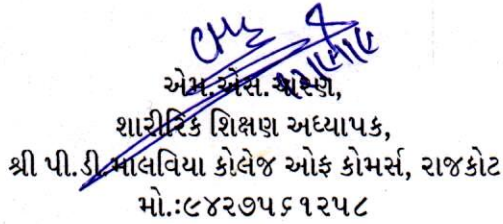 એમ.એસ.ચારણ,
શારીરિક શિક્ષણ અધ્યાપક,
શ્રી પી.ડી.માલવિયા કોલેજ ઓફ કોમર્સ, રાજકોટ
મો.:૯૪૨૭૫૬૧૨૫૮